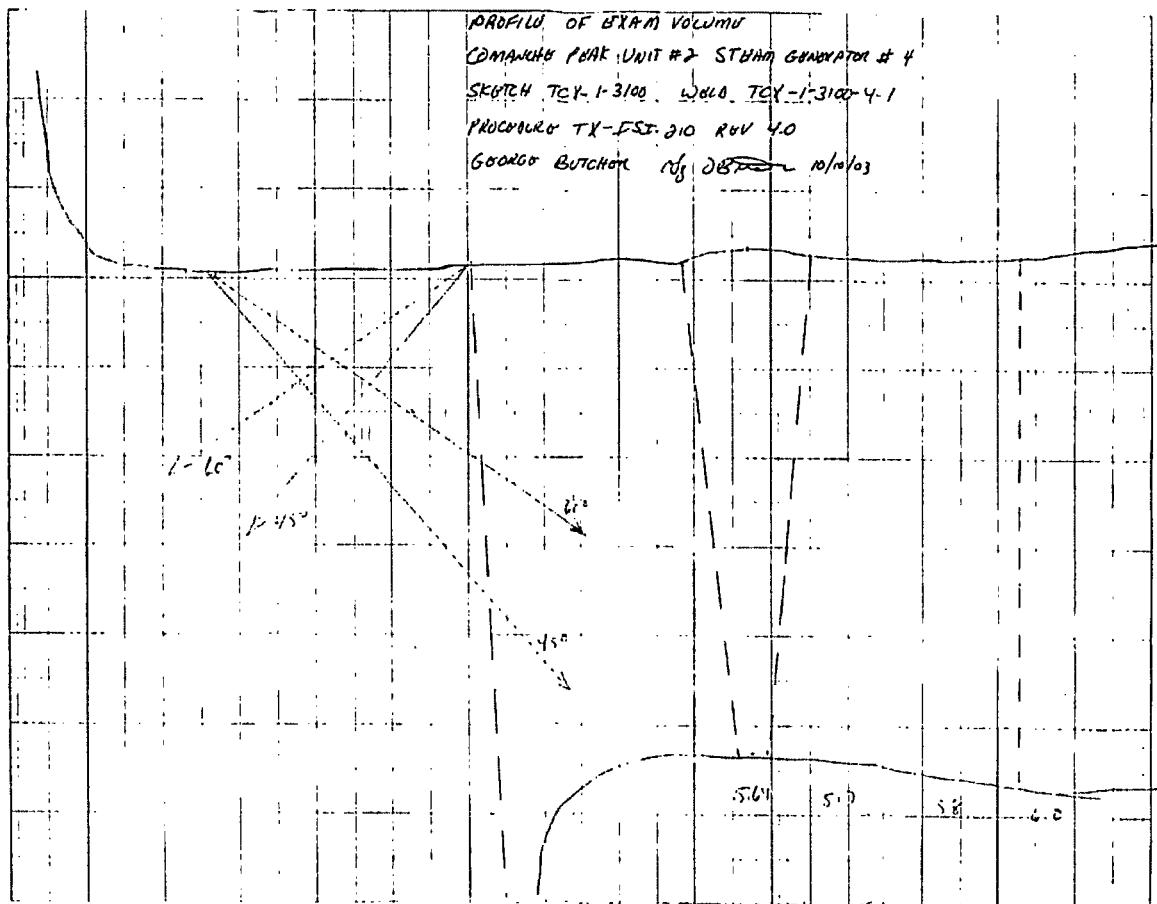 PROFILE OF EXAM VOLUME
COMANCHE PEAK UNIT #2 STEAM GENERATOR # 4
SKETCH TCX-1-3100 WELD TCX-1-3100-4-1
PROCEDURE TX-ISI-210 REV 4.0
GEORGE BUTCHER 10/10/03
45°
45°
5.8
6.0